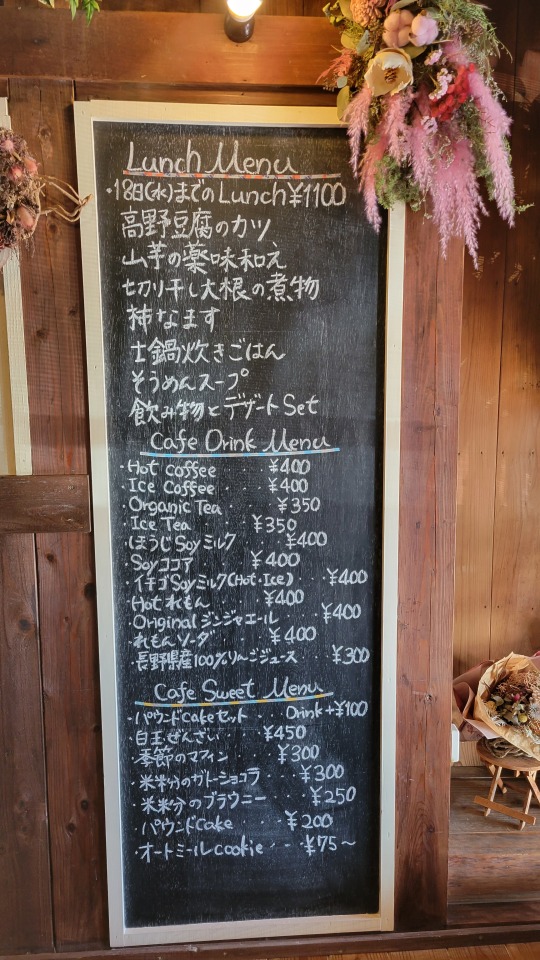 Lunch Menu
・18日(水)までのLunch¥1100
高野豆腐のカツ
山芋の薬味和え
切り干し大根の煮物
柿なます
土鍋炊きごはん
そうめんスープ
飲み物とデザートSet
Cafe Drink Menu
・Hot coffee ¥400
・Ice Coffee・・ ¥400
・Organic Tea・・ ¥350
・Ice Tea・・・¥350
・ほうじSoyミルク ¥400
・Soyココア ¥400
・イチゴSoyミルク(Hot・Ice)・・¥400
・Hotれもん ¥400
・Originalジンジャエール ¥400
・れもんソーダ・・¥400
・長野県産100%りんごジュース・・¥300
Cafe Sweet Menu
・パウンドCakeセット・・・Drink+¥100
・白玉ぜんざい ¥450
・季節のマフィン・・¥300
・米米分のガトーショコラ・・・¥300
・米米分のブラウニー・・・¥250
・パウンドCake・・・¥200
・オートミールcookie・- ・¥75〜